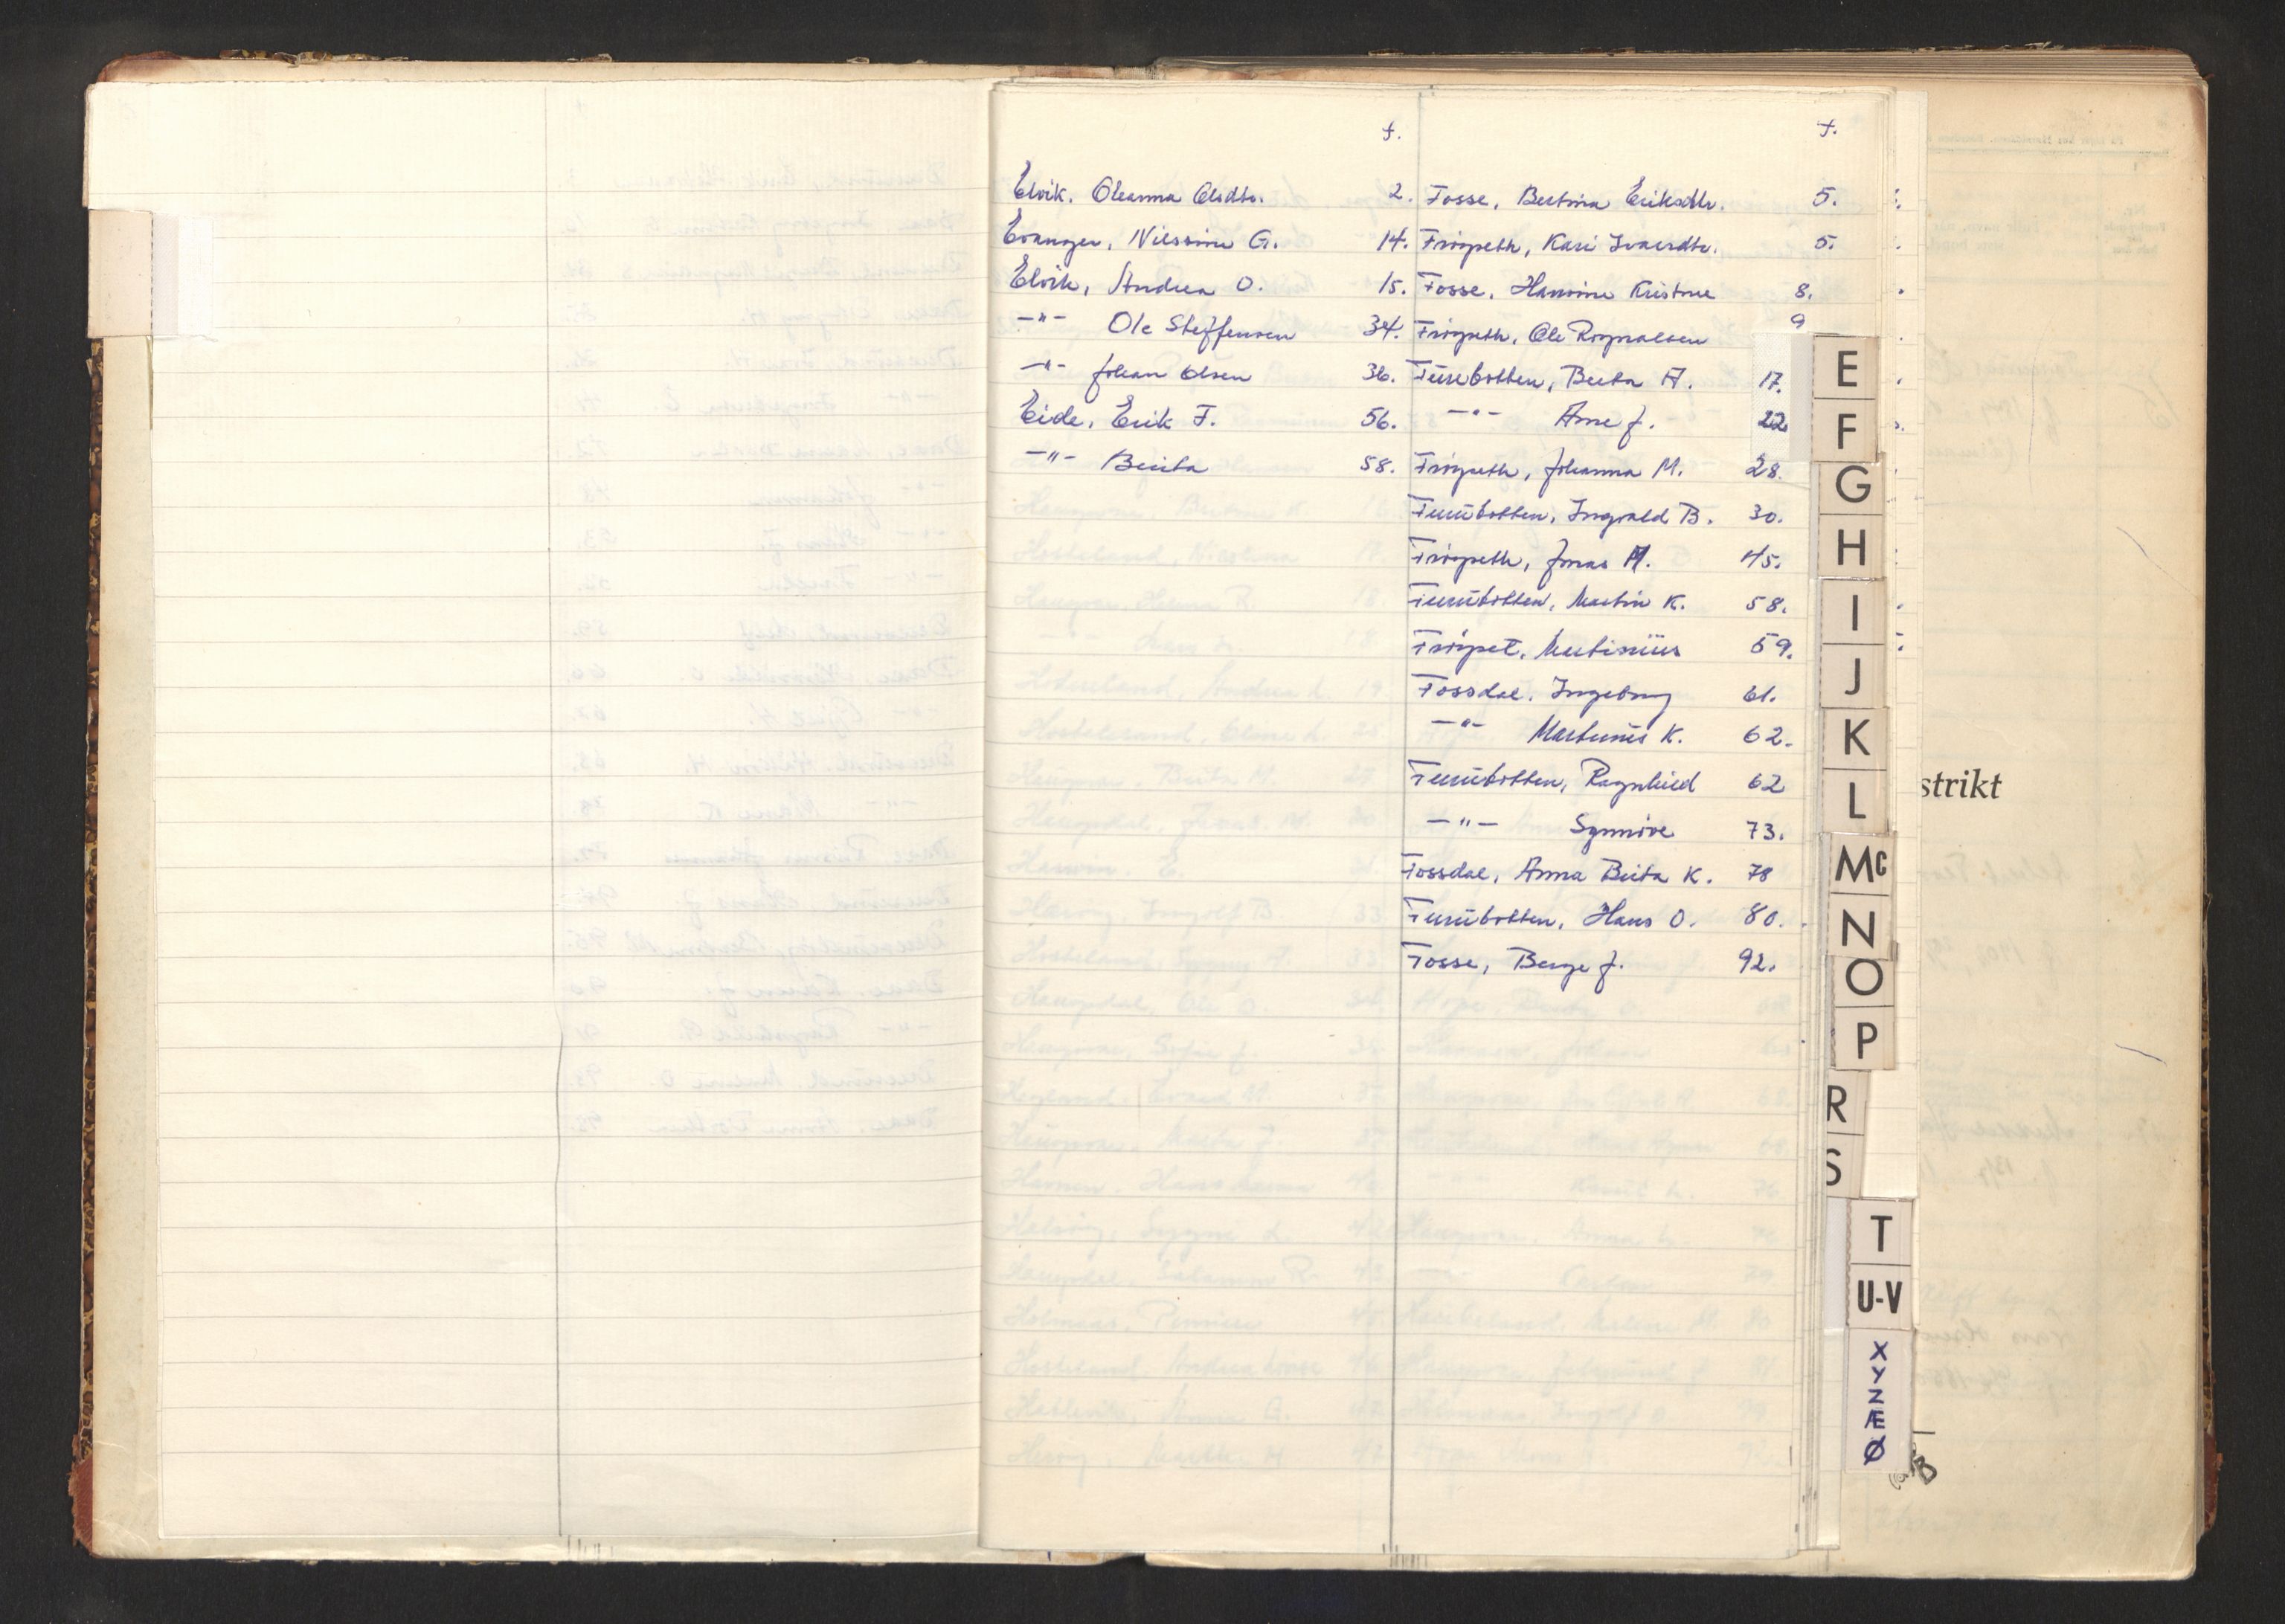 f.
Elvik. Oleanna Olsdtr. 2.
Evanger, Nilssine G. 14.
Elvik, Andrea O. 15.
-"- Ole Steffensen 34.
-"- Johan Olsen 36.
Eide, Erik F. 56.
-"- Berta 58.
f.
Fosse, Bertina Eriksdtr. 5.
Frøyseth, Kari Ivarsdtr. 5.
Fosse, Hansine Kristine 8.
Frøyseth, Ole Rognaldsen 9
Furebotten, Berta A. 17.
-"- Arne J. 22.
Frøyseth, Johanna M. 28.
Furubotten, Ingvald B. 30.
Frøyseth, Jonas M. 45.
Furubotten, Martin K. 58.
Frøyset, Martinius 59.
Fossdal, Ingeborg 61.
-"- Martinus K. 62.
Furubotten, Ragnhild 62
-"- Synnøve 73.
Fossdal, Anna Berta K. 78
Furubotten, Hans O. 80.
Fosse, Berge J. 92.
E
F
G
H
I
J
K
L
Mc
N
O
P
R
S
T
U-V
X
Y
Z
Æ
Ø
strikt